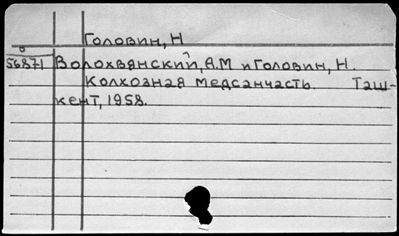 Головин, Н
56871 Волохвянский, А.М и Головин, Н.
Колхозная медсанчасть. Таш-
кент, 1958.